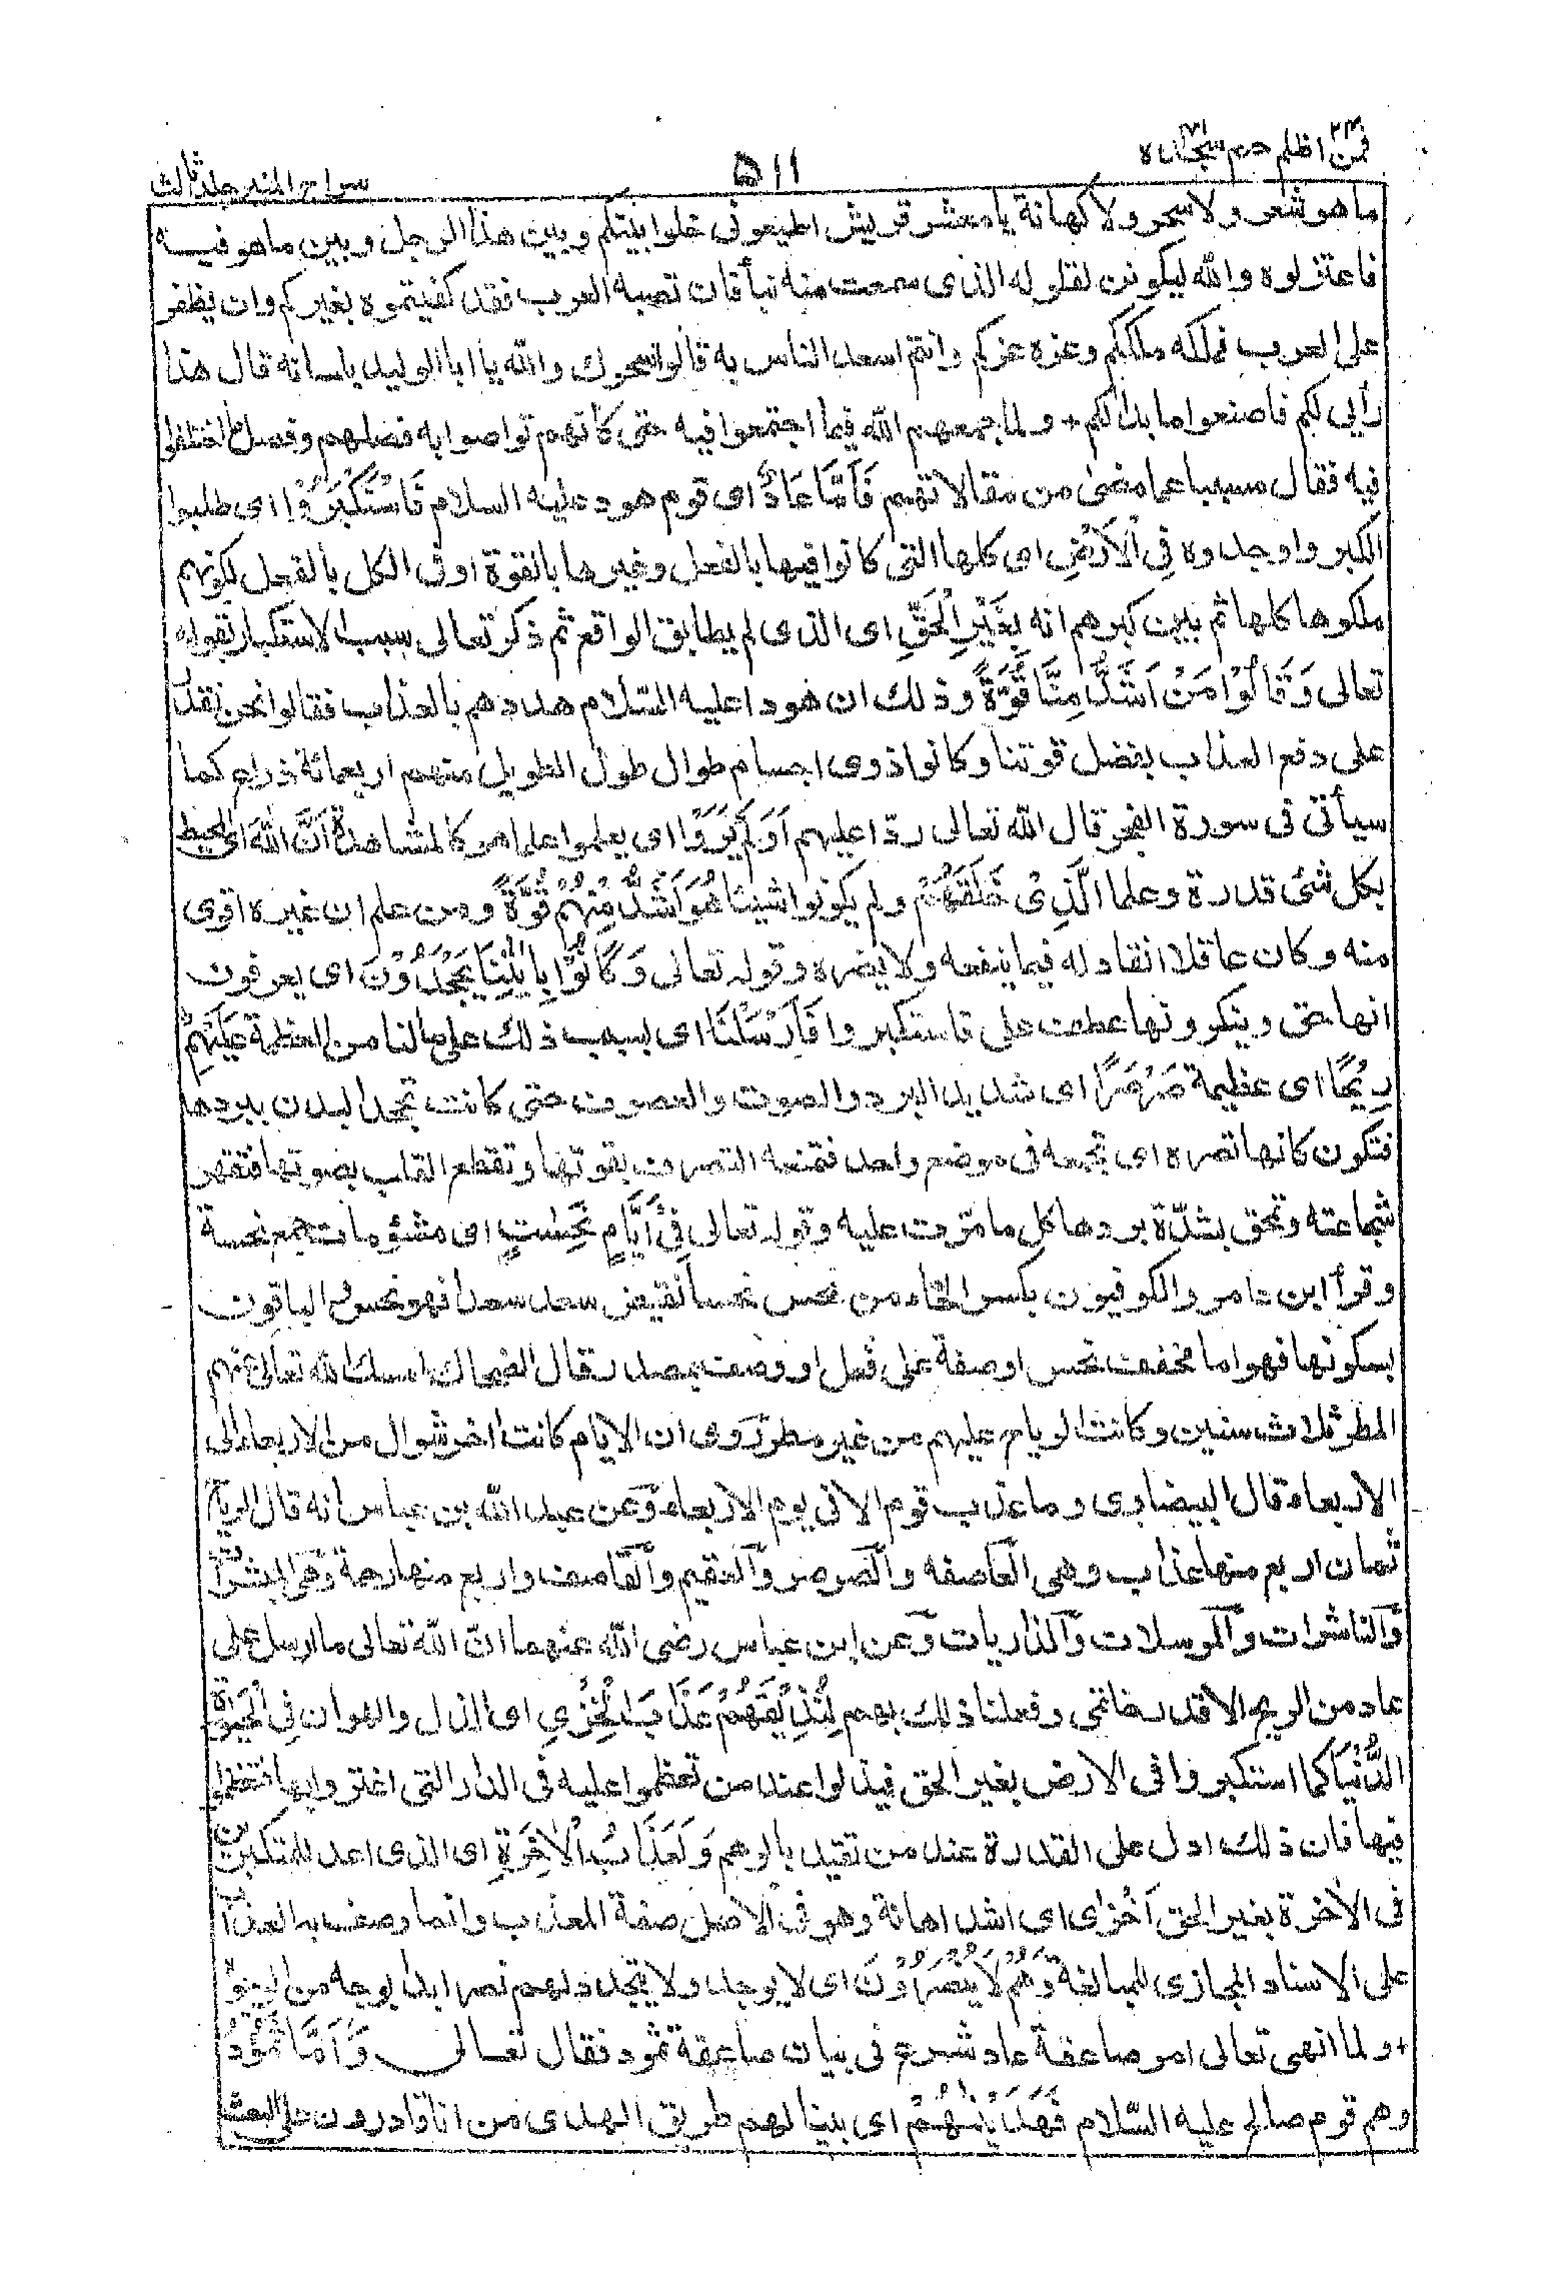 فمن اظلم ٢٤ حم سجدة ٤١
٥١١
سراج المنير جلد ثالث
ما هو شعر ولا سحر ولا كهانة يا معشر قريش اطيعونى خلوا بينكم وبين هذا الرجل وبين ما هو فيه
فاعتزلوه والله ليكونن لقوله الذى سمعت منه نبأ فان تصبه العرب فقد كفيتموه بغيركم وان يظفر
على العرب فملكه ملككم وعزه عزكم وانتم اسعد الناس به قالوا سحرك والله يا ابا الوليد بلسانه قال هذا
رأيى لكم فاصنعوا ما بدا لكم + ولما جمعهم الله فيما اجتمعوا فيه حتى كانهم تواصوا به فصلهم وفصل ما اختلفوا
فيه فقال مسببا عما مضى من مقالاتهم فَاَمَّا عَادٌ اى قوم هود عليه السلام فَاسْتَكْبَرُوْا اى طلبوا
الكبر واوجدوه فِى الْاَرْضِ اى كلها التى كانوا فيها بالفعل وغيرها بالقوة او فى الكل بالفعل لكونهم
ملكوها كلها ثم بين كبرهم انه بِغَيْرِ الْحَقِّ اى الذى لم يطابق الواقع ثم ذكر تعالى سبب الاستكبار بقوله
تعالى وَقَالُوْا مَنْ اَشَدُّ مِنَّا قُوَّةً وذلك ان هودا عليه السّلام هددهم بالعذاب فقالوا نحن نقدر
على دفع العذاب بفضل قوتنا وكانوا ذوى اجسام طوال طول الطويل منهم اربعمائة ذراع كما
سيأتى فى سورة الفجر قال الله تعالى ردّا عليهم اَوَلَمْ يَرَوْا اى يعلموا علما هو كالمشاهدة اَنَّ اللّٰهَ اى المحيط
بكل شئ قدرة وعلما الَّذِىْ خَلَقَهُمْ ولم يكونوا شيئا هُوَ اَشَدُّ مِنْهُمْ قُوَّةً ومن علم ان غيره اقوى
منه وكان عاقلا انقاد له فيما ينفعه ولا يضره وقوله تعالى وَكَانُوْا بِاٰيٰتِنَا يَجْحَدُوْنَ اى يعرفون
انها حق وينكرونها عطف على فاستكبروا فَاَرْسَلْنَا اى بسبب ذلك على مالنا من العظمة عَلَيْهِمْ
رِيْحًا اى عظيمة صَرْصَرًا اى شديد البرد والصوت والعصوف حتى كانت تجمد البدن ببردها
فتكون كانها تصره اى تجمعه فى موضع واحد فتمنعه التصرف بقوتها وتقطع القلب بصوتها فتقهر
شجاعته وتحرق بشدّة بردها كل ما مرّت عليه وقوله تعالى فِىْ اَيَّامٍ نَّحِسٰتٍ اى مشئومات جمع نحسة
وقرأ ابن عامر والكوفيون بكسر الحاء من نحس نحسا نقيض سعد سعدا فهو نحس والباقون
بسكونها فهو اما مخفف نحس او صفة على فعل او وصف بمصدر قال الضحاك امسك الله تعالى عنهم
المطر ثلاث سنين وكانت الرياح عليهم من غير مطر روى ان الايام كانت اخر شوال من الاربعاء الى
الاربعاء قال البيضاوى وما عذب قوم الا فى يوم الاربعاء وعن عبد الله بن عباس انه قال الرياح
ثمان اربع منها عذاب وهى العاصفه والصرصر والعقيم والقاصف واربع منها رحمة وهى المبشرات
والناشرات والمرسلات والذاريات وعن ابن عباس رضى الله عنهما ان الله تعالى ما ارسل على
عاد من الريح الا قدر خاتمى وفعلنا ذلك بهم لِنُذِيْقَهُمْ عَذَابَ الْخِزْىِ اى الذل والهوان فِى الْحَيٰوةِ
الدُّنْيَا كما استكبروا فى الارض بغير الحق فيذلوا عند من تعظموا عليه فى الدار التى اغتروا بها فتعظموا
فيها فان ذلك ادل على القدرة عند من تقيد بالوهم وَلَعَذَابُ الْاٰخِرَةِ اى الذى اعد للمتكبرين
فى الاخرة بغير الحق اَخْزٰى اى اشد اهانة وهو فى الاصل صفة المعذب وانما وصف به العذاب
على الاسناد المجازى للمبالغة وَهُمْ لَا يُنْصَرُوْنَ اى لا يوجد ولا يتجدد لهم نصر ابدا بوجه من الوجوه
+ ولما انهى تعالى امر صاعقة عاد شرع فى بيان صاعقة ثمود فقال تعالى وَاَمَّا ثَمُوْدُ
وهم قوم صالح عليه السّلام فَهَدَيْنٰهُمْ اى بينا لهم طريق الهدى من انا قادرون على البعث